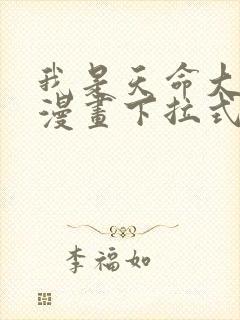 我是天命大
漫畫下拉式
李福如